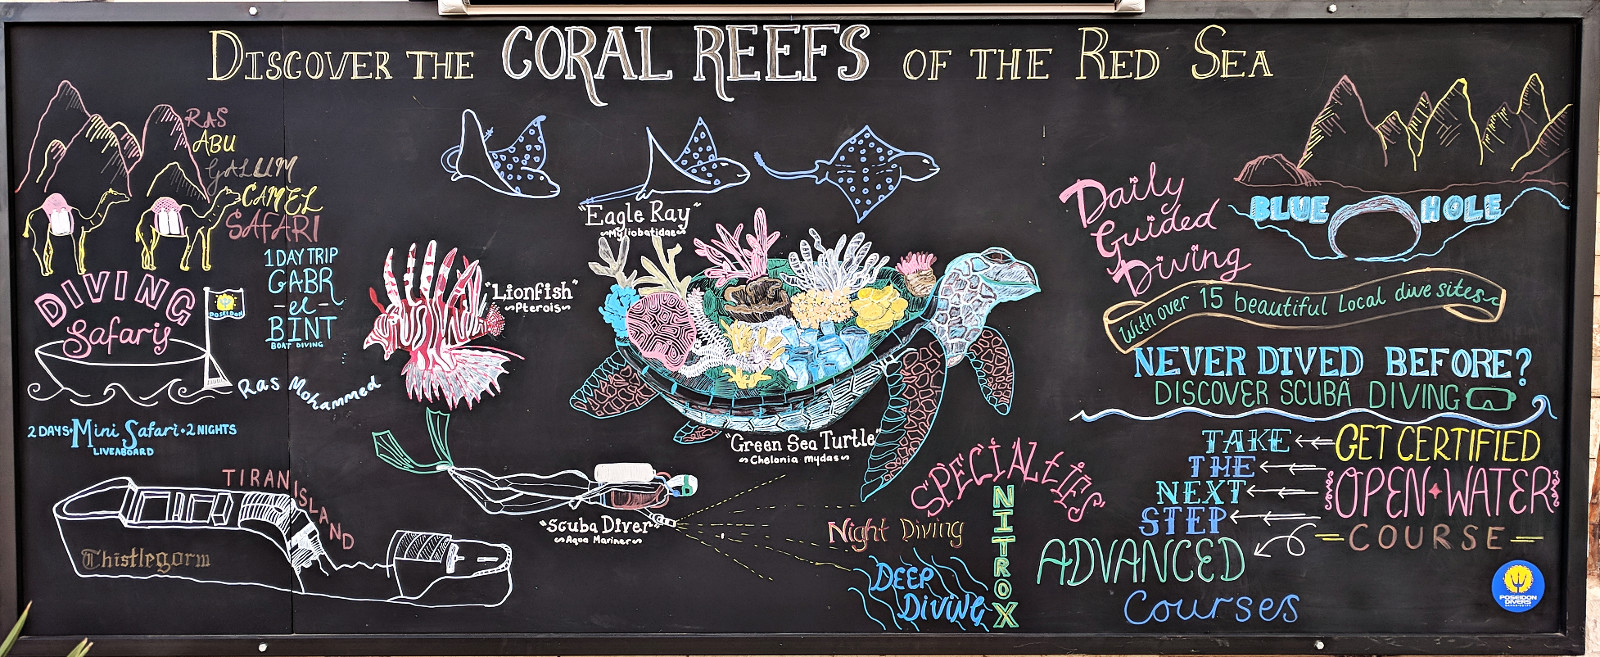 DISCOVER THE CORAL REEFS OF THE RED SEA
RAS
ABU
GALUM
CAMEL
SAFARI
1 DAY TRIP
GABR
-el-
BINT
BOAT DIVING
DIVING
Safariy
POSEIDON
Ras Mohammed
2 DAYS • Mini Safari • 2 NIGHTS
LIVEABOARD
TIRAN ISLAND
Thistlegorm
"Eagle Ray"
~Myliobatidae~
"Lionfish"
~Pterois~
"Green Sea Turtle"
~Chelonia mydas~
"Scuba Diver"
~Aqua Mariner~
SPECIALTIES
NITROX
Night Diving
DEEP
DIVING
Daily
Guided
Diving
BLUE HOLE
With over 15 beautiful Local dive sites
NEVER DIVED BEFORE?
DISCOVER SCUBA DIVING
GET CERTIFIED
OPEN WATER
COURSE
TAKE
THE
NEXT
STEP
ADVANCED
Courses
POSEIDON
DIVERS